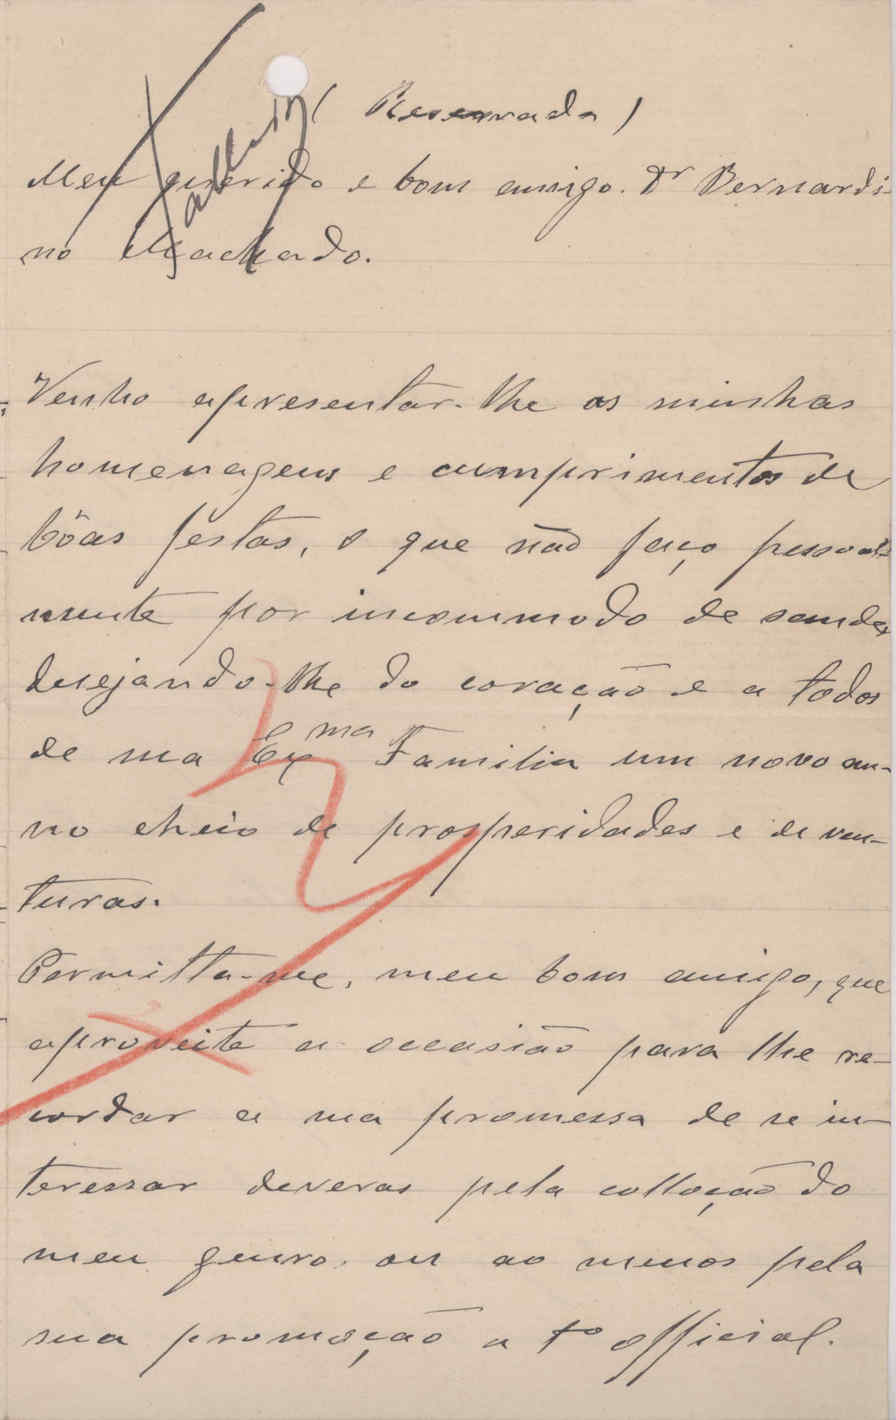 (Reservada)
Meu querido e bom amigo. Dr Bernardi-
no Machado.
Venho apresentar-lhe as minhas
homenagens e cumprimentos de
bôas fèstas, o que não faço pessoal-
mente por incommodo de saude,
desejando-lhe do coração e a todos
de sua Exma Familia um novo an-
no cheio de prosperidades e de ven-
turas.
Permitta-me, meu bom amigo, que
aproveite a occasião para lhe re-
cordar a sua promessa de se in-
teressar deveras pela collocação do
meu genro, ou ao menos pela
sua promoção a 1o official.